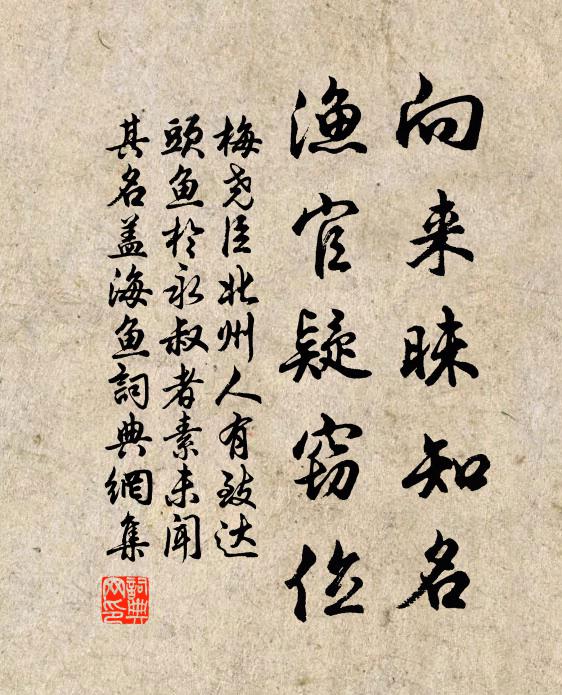 向来昧知名
渔官疑窃位
梅尧臣北州人有致达
頭鱼於永叔者素未闻
其名盖海鱼詞典網集
詞典网印